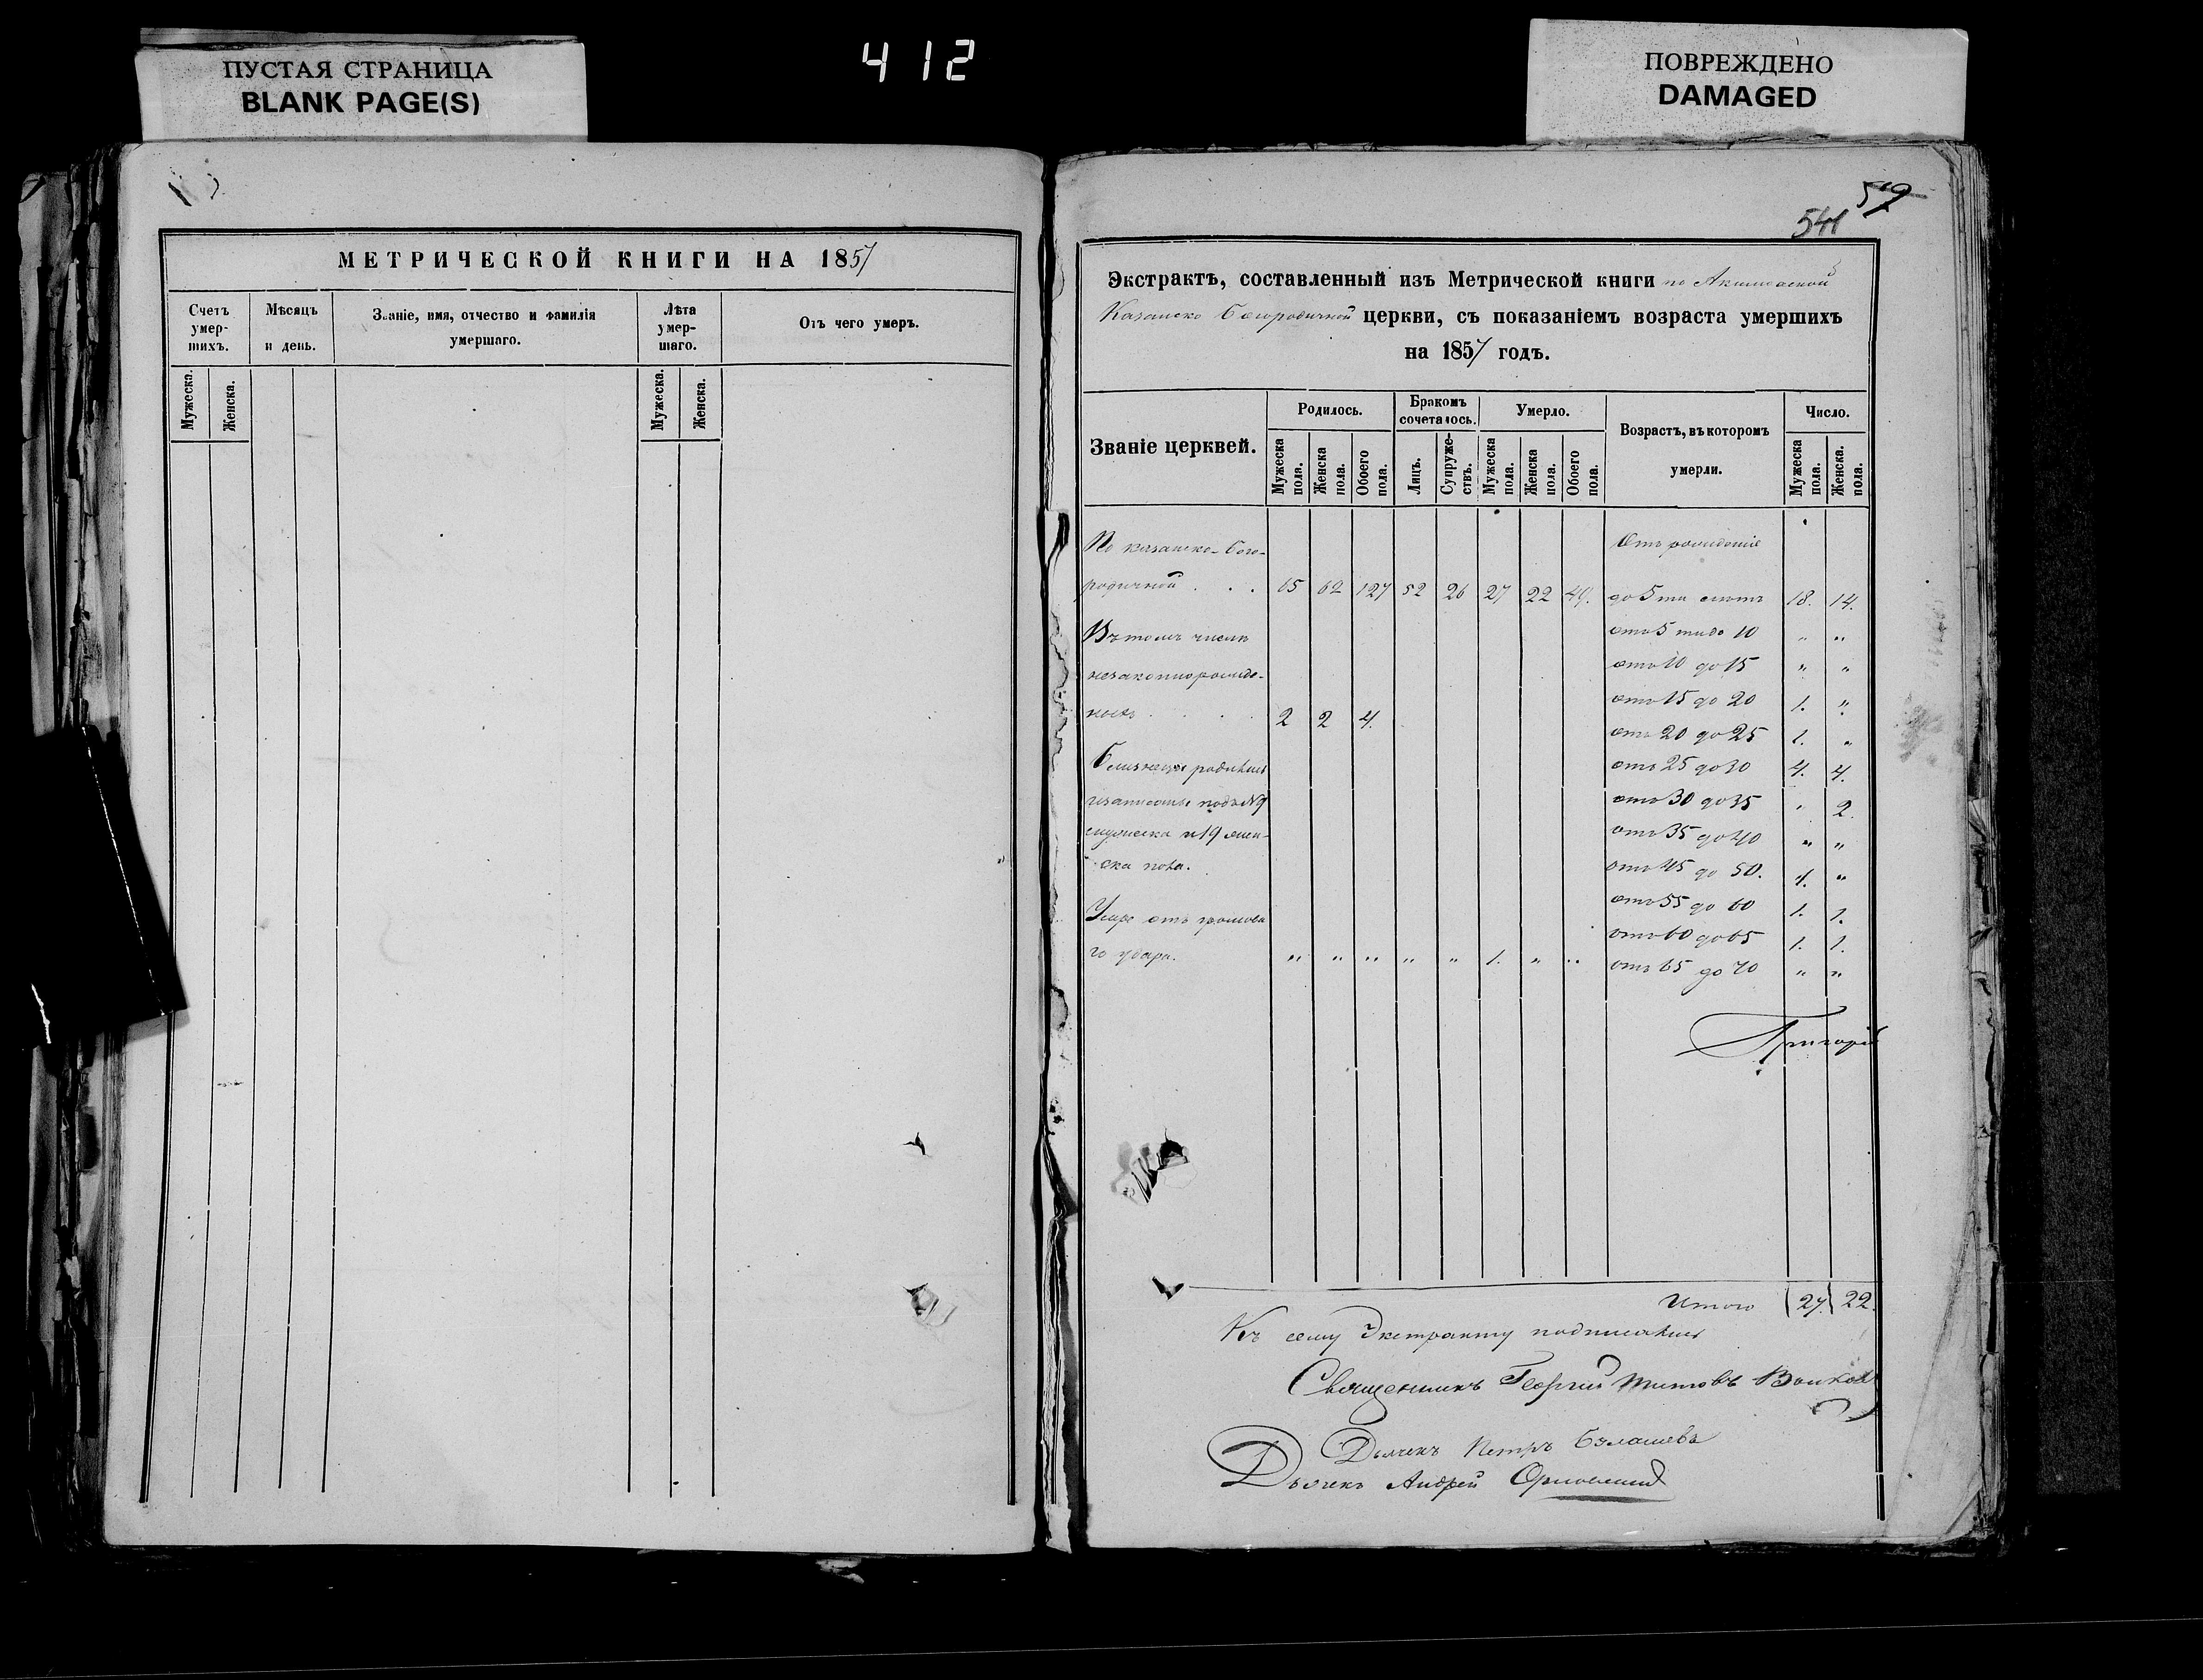 ПУСТАЯ СТРАНИЦА
BLANK PAGE(S)
412
ПОВРЕЖДЕНО
DAMAGED
МЕТРИЧЕСКОЙ КНИГИ НА 1857
Счетъ умер-шихъ.
Мѣсяцъ и день.
Званіе, имя, отчество и фамилія умершаго.
Лѣта умер-шаго.
Отъ чего умеръ.
Мужеска. Женска. Мужеска. Женска.
59
541
Экстрактъ, составленный изъ Метрической книги по
Казанско Богородичной церкви, съ показаніемъ возраста умершихъ
на 1857 годъ.
Званіе церквей.
Родилось.
Бракомъ сочеталось.
Умерло.
Возрастъ, въ которомъ умерли.
Число.
Мужеска пола. Женска пола. Обоего пола. Лицъ. Супруже-ствъ. Мужеска пола. Женска пола. Обоего пола. Мужеска пола. Женска. пола.
По казанско-Бого- Отъ рожденія
родичной . . . 65 62 127 52 26 27 22 49. до 5ти 18. 14.
Въ томъ числѣ отъ 5 ти до 10 " "
незаконнорожде- отъ 10 до 15 " "
ныхъ . . . . 2 2 4. отъ 15 до 20 1. "
отъ 20 до 25 1. "
Близнецы родились отъ 25 до 30 4. 4.
и записаны подъ №9 отъ 30 до 35 " 2.
мужеска и 19 жен- отъ 35 до 40 " "
ска пола. отъ 45 до 50. 1. "
Умре отъ громова отъ 55 до 60 1. 1.
отъ 60 до 65 1. 1.
го удара. " " " " " 1. " " отъ 65 до 70 " "
Григорій
Итого 27 22.
Къ сему Экстракту подписались
Священникъ Георгий Титовъ
Дьячекъ Петръ
Дьячекъ Андрей